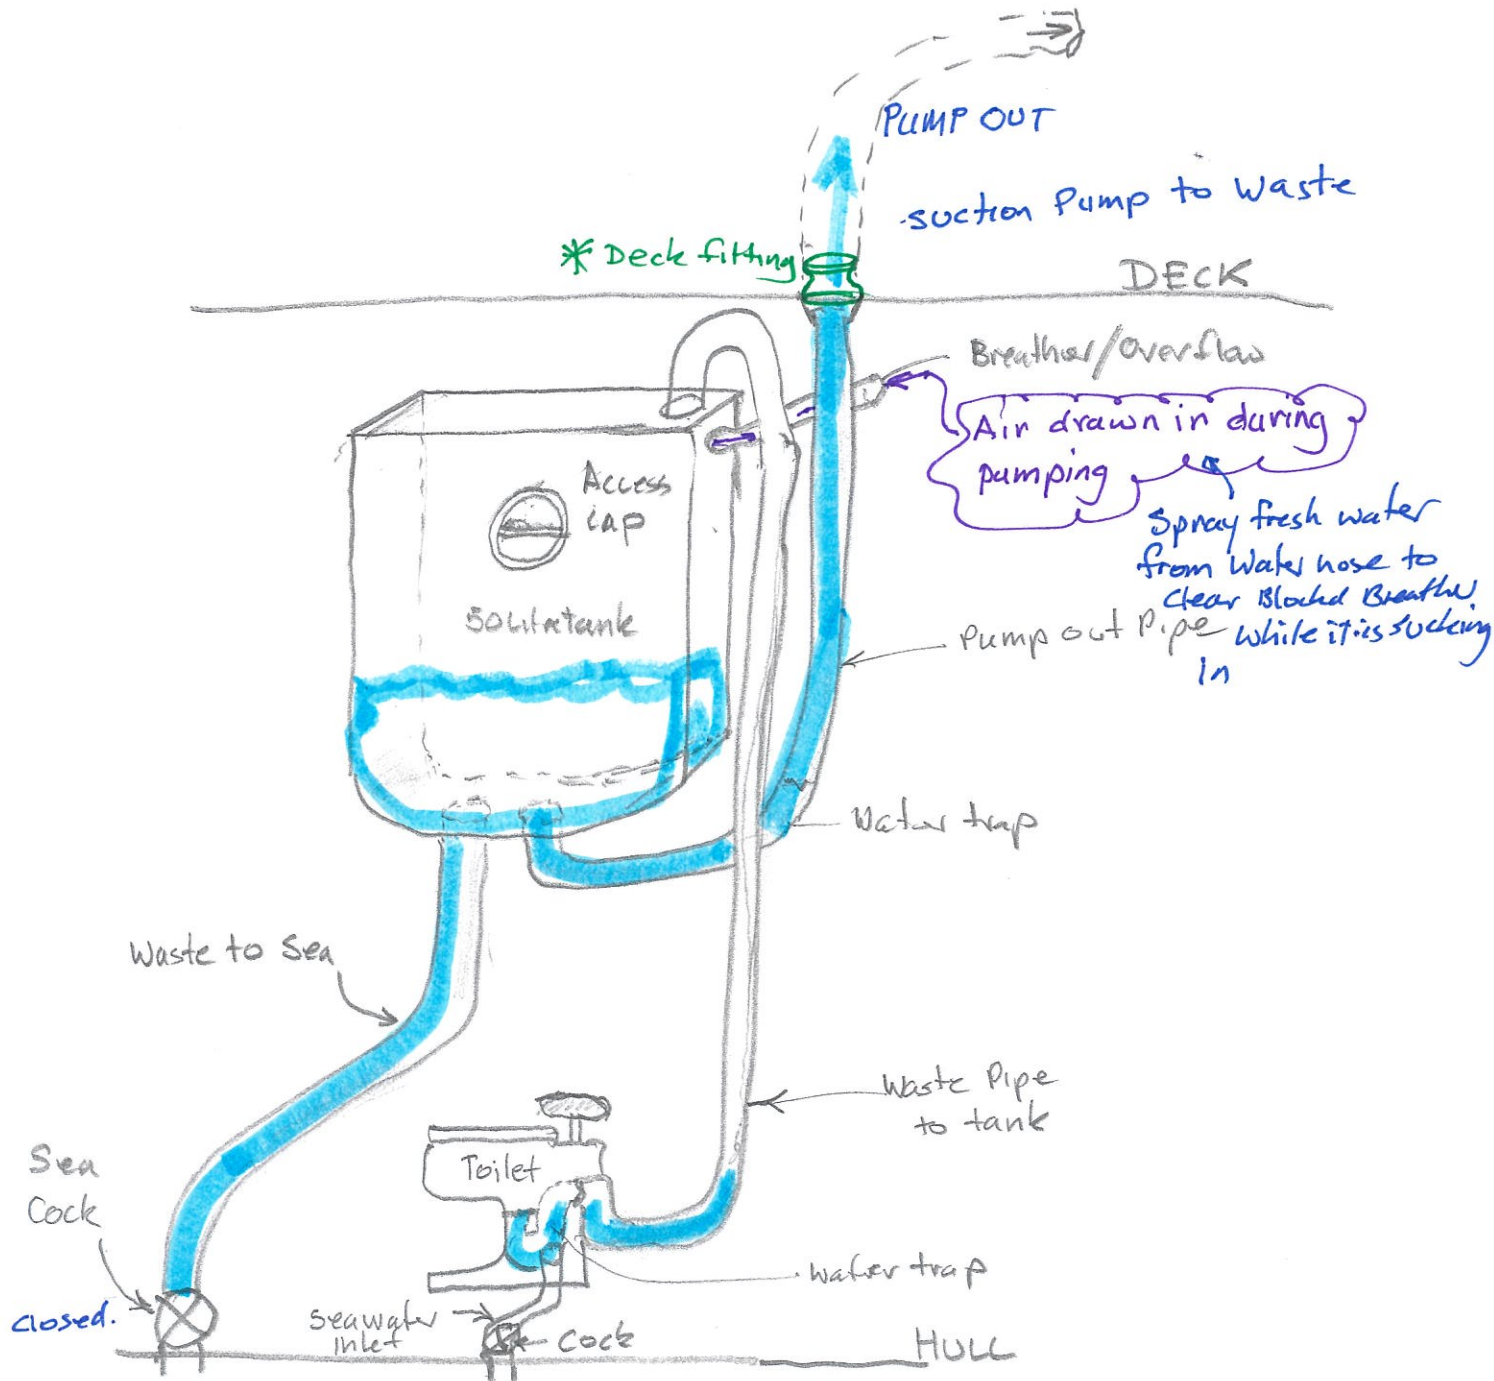 PUMP OUT
suction Pump to Waste
* Deck fitting
DECK
Breather/Overflow
Air drawn in during
pumping
Access
Cap
Spray fresh water
from Water hose to
Clear Blocked Breather
while it is sucking
in
50 Litre tank
Pump out Pipe
Water trap
Waste to Sea
Waste Pipe
to tank
Sea
Cock
Toilet
closed.
Water trap
Seawater
inlet
Cock
HULL